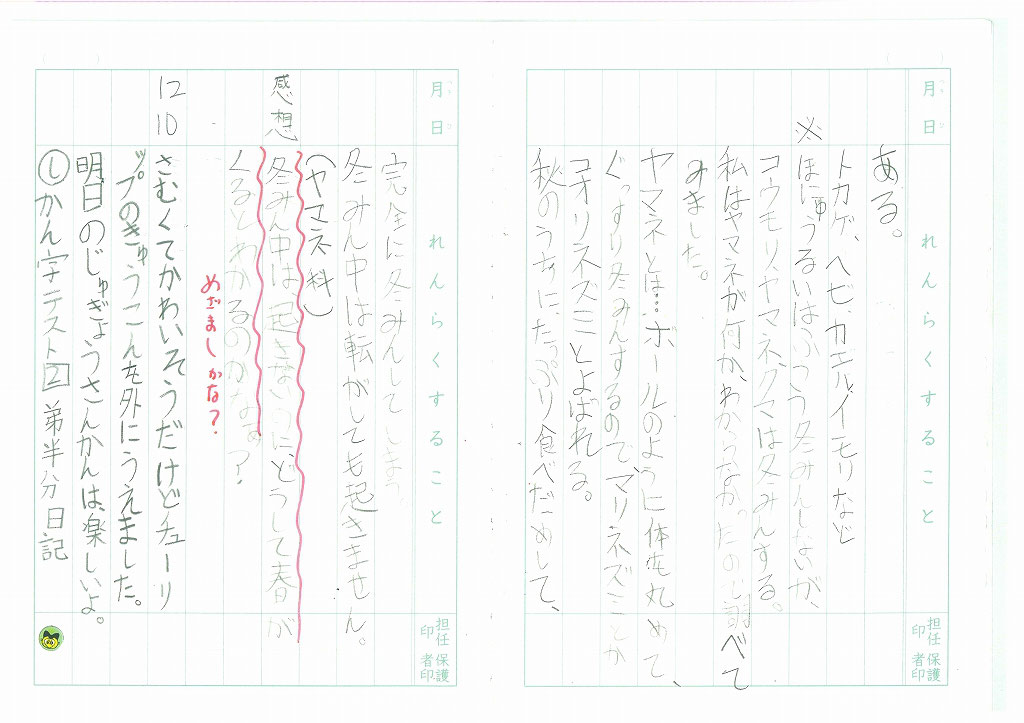 月日
れんらくすること
担任印
保護者印
ある。
トカゲ、ヘビ、カエル、イモリなど
※ほにゅうるいはふつう冬みんしないが、
コウモリ、ヤマネ、クマは冬みんする。
私はヤマネが何か、わからなかったので調べて
みました。
ヤマネとは…ボールのように体を丸めて、
ぐっすり冬みんするので、マリネズミとか
コオリネズミとよばれる。
秋のうちに、たっぷり食べだめして、
月日
れんらくすること
担任印
保護者印
完全に冬みんしてしまう。
冬みん中は転がしても起きません。
(ヤマネ科)
感想 冬みん中は起きないのに、どうして春が
くるとわかるのかなぁ?
めざましかな?
12 10 さむくてかわいそうだけどチューリ
ップのきゅうこんを外にうえました。
明日のじゅぎょうさんかんは、楽しいよ。
し かん字テスト2 第半分 日記